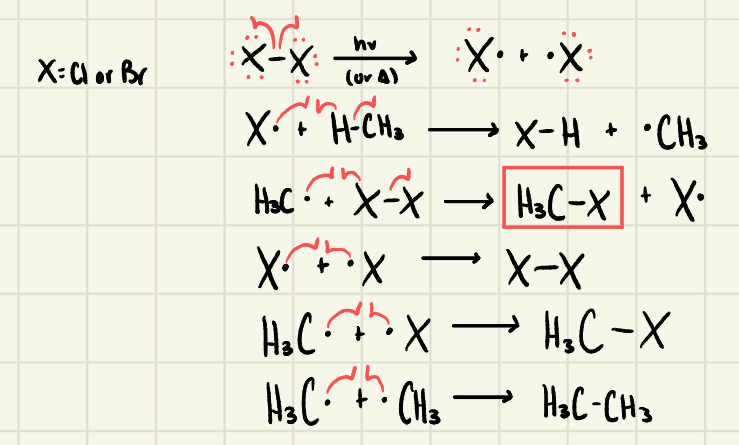 X–X hν (or Δ) → X· + ·X
X=Cl or Br
X· + H-CH₃ → X-H + ·CH₃
H₃C· + X-X → H₃C-X + X·
X· + ·X → X-X
H₃C· + ·X → H₃C-X
H₃C· + ·CH₃ → H₃C-CH₃